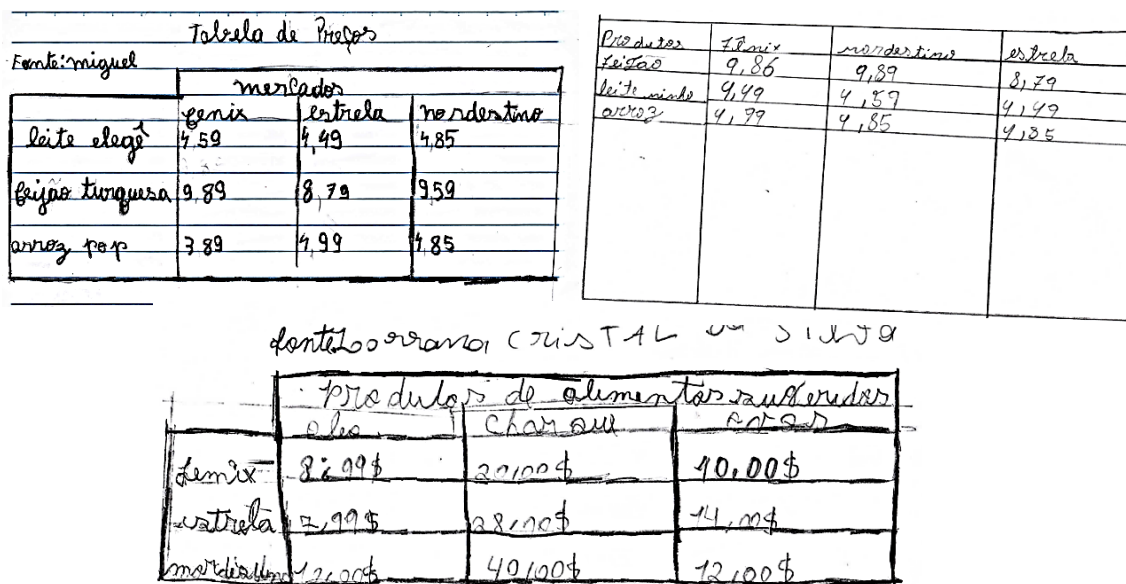 Tabela de Preços
Fonte: miguel
mercados
fenix estrela nordestino
leite elegê 4,59 4,49 4,85
feijão turquesa 9,89 8,79 9,59
arroz pop 3,89 4,99 4,85
Produtos Fênix nordestino estrela
feijão 9,86 9,89 8,79
leite ninho 4,49 4,59 4,49
arroz 4,99 4,85 4,85
CRISTAL
Produtos de alimentos sugeridos
oleo charque
femix 8,99$ 20,00$ 10,00$
estrela 7,99$ 28,00$ 14,00$
12,00$ 40,00$ 12,00$